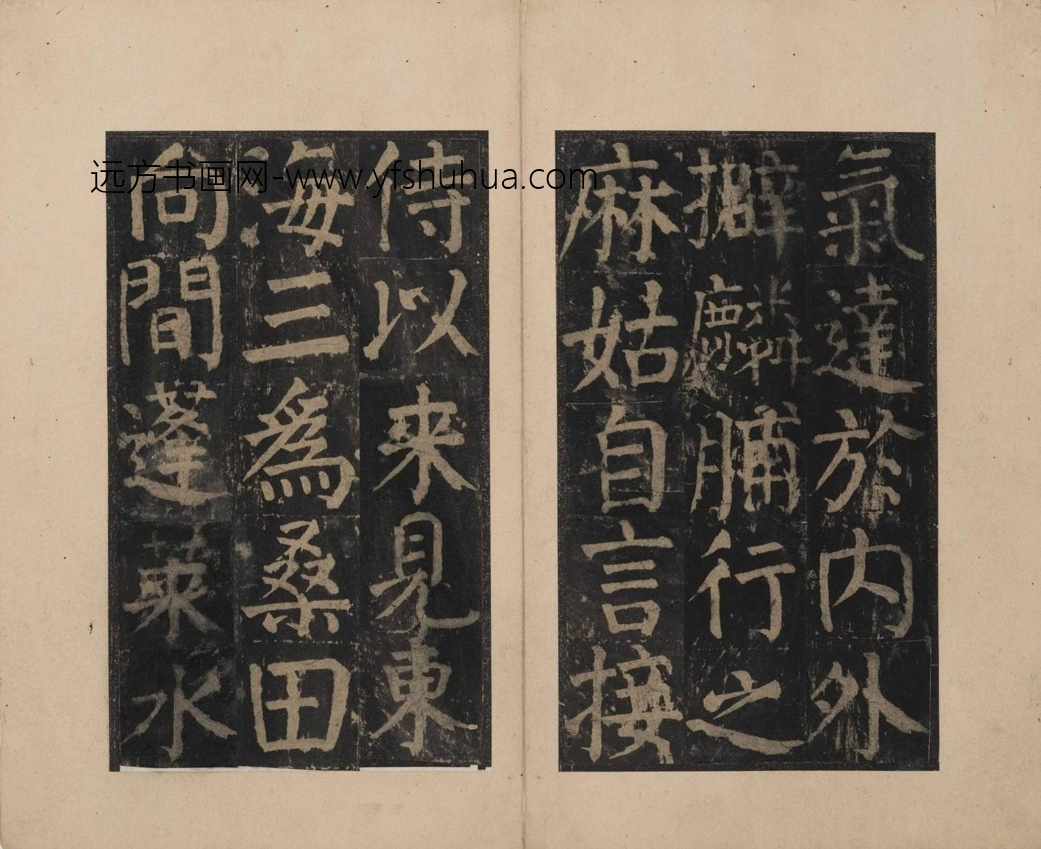 氣達於内外
擗麟脯行之
麻姑自言接
侍以来見東
海三為桑田
向間蓬萊水
远方书画网-www.yfshuhua.com